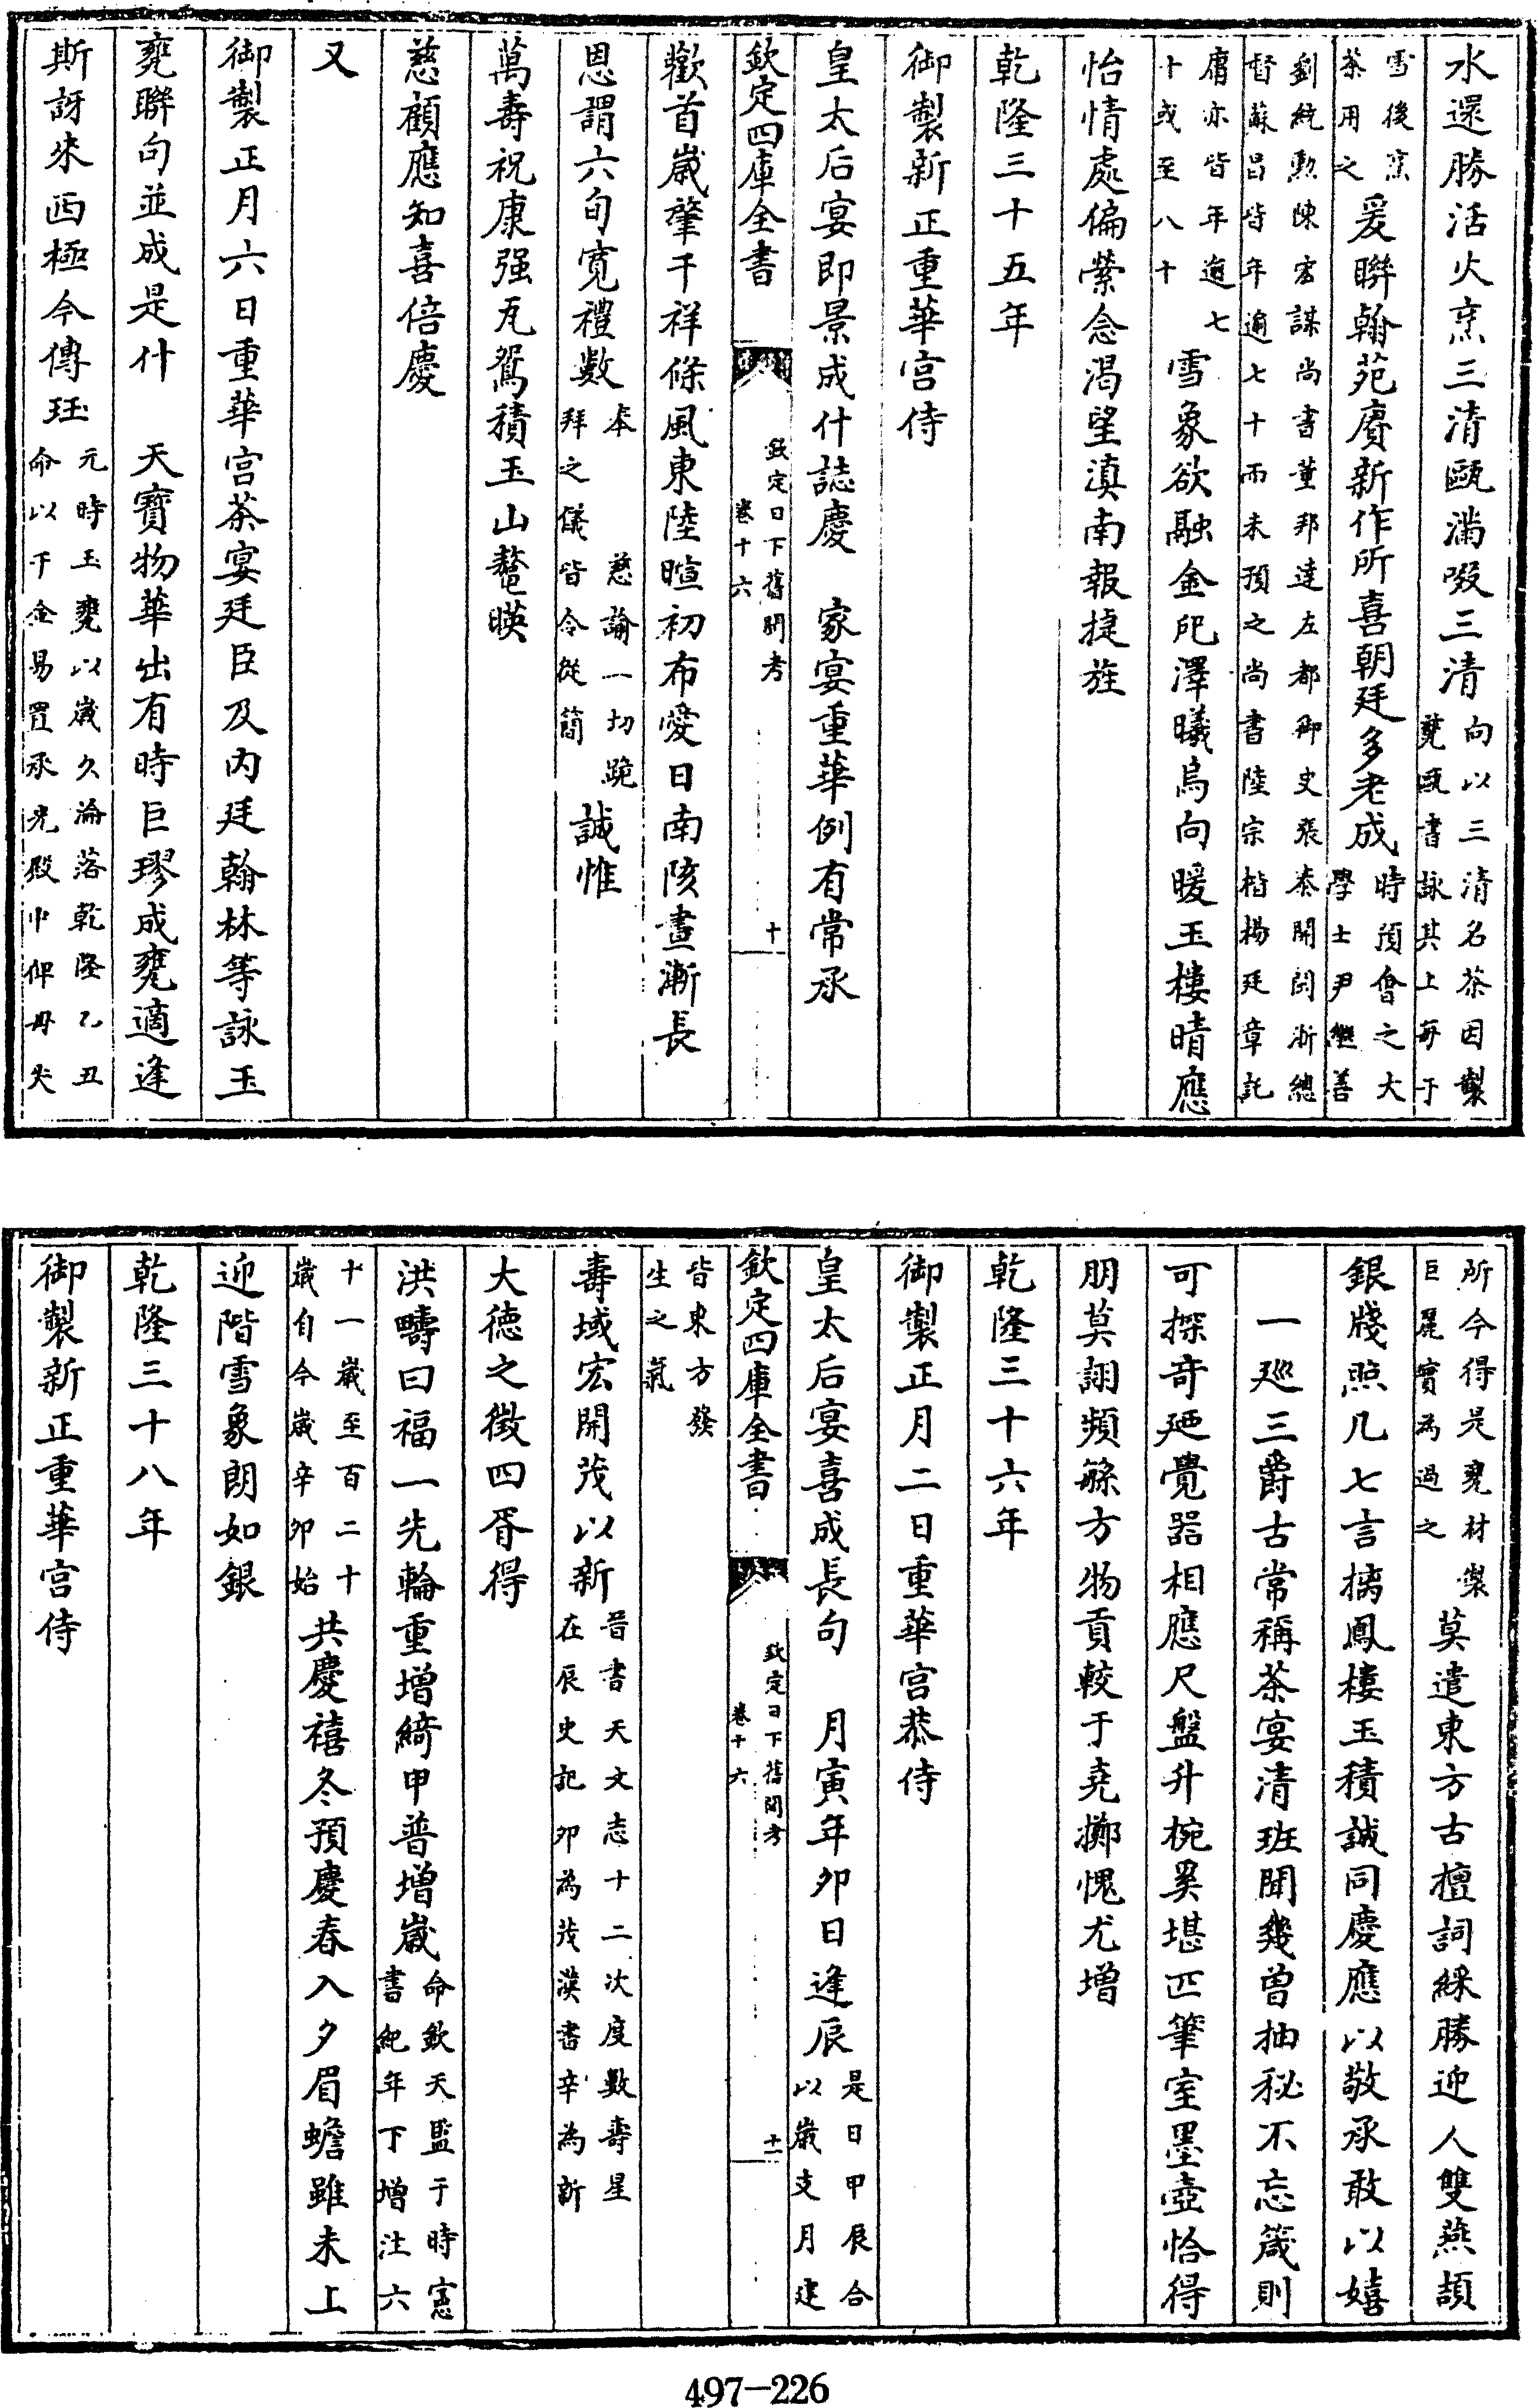 水還勝活火烹三清甌滿啜三清向以三清名茶因製
甆甌書詠其上每于
雪後烹
茶用之爰聨翰苑賡新作所喜朝廷多老成時預會之大
學士尹繼善
劉統勲陳宏謀尚書董邦達左都御史張泰開閩浙總
督蘇昌皆年逾七十而未預之尚書陸宗楷楊廷章託
庸亦皆年逾七
十或至八十雪象欲融金戺澤曦烏向暖玉樓晴應
怡情處偏縈念渴望滇南報捷旌
乾隆三十五年
御製新正重華宫侍
皇太后宴即景成什誌慶　家宴重華例有常承
欽定四庫全書
欽定日下舊聞考
卷十六
十
歡首嵗肇千祥條風東陸暄初布愛日南陔晝漸長
恩謂六旬寛禮數奉
慈諭一切跪
拜之儀皆令從簡誠惟
萬壽祝康强瓦鴛積玉山鼇暎
慈顧應知喜倍慶
又
御製正月六日重華宫茶宴廷臣及内廷翰林等詠玉
甕聨句並成是什　天寶物華出有時巨璆成甕適逢
斯訝來西極今傳珏元時玉甕以嵗久淪落乾隆乙丑
命以千金易置承光殿中俾毋失
所今得是甕材製
巨麗實為過之莫遣東方古擅詞綵勝迎人雙燕頡
銀牋照几七言摛鳳樓玉積誠同慶應以敬承敢以嬉
一廵三爵古常稱茶宴清班聞幾曾抽秘不忘箴則
可探奇廼覺器相應尺盤升椀奚堪匹筆室墨壺恰得
朋莫詡頻繇方物貢較于堯擲愧尤增
乾隆三十六年
御製正月二日重華宫恭侍
皇太后宴喜成長句　月寅年卯日逢辰是日甲辰合
以嵗支月建
欽定四庫全書
欽定日下舊聞考
卷十六
十一
皆東方發
生之氣
壽域宏開茂以新晉書天文志十二次度數壽星
在辰史記卯為茂漢書辛為新
大徳之徴四胥得
洪疇曰福一先輪重增綺甲普增嵗命欽天監于時憲
書紀年下增注六
十一嵗至百二十
嵗自今嵗辛卯始共慶禧冬預慶春入夕眉蟾雖未上
迎階雪象朗如銀
乾隆三十八年
御製新正重華宫侍
497—226